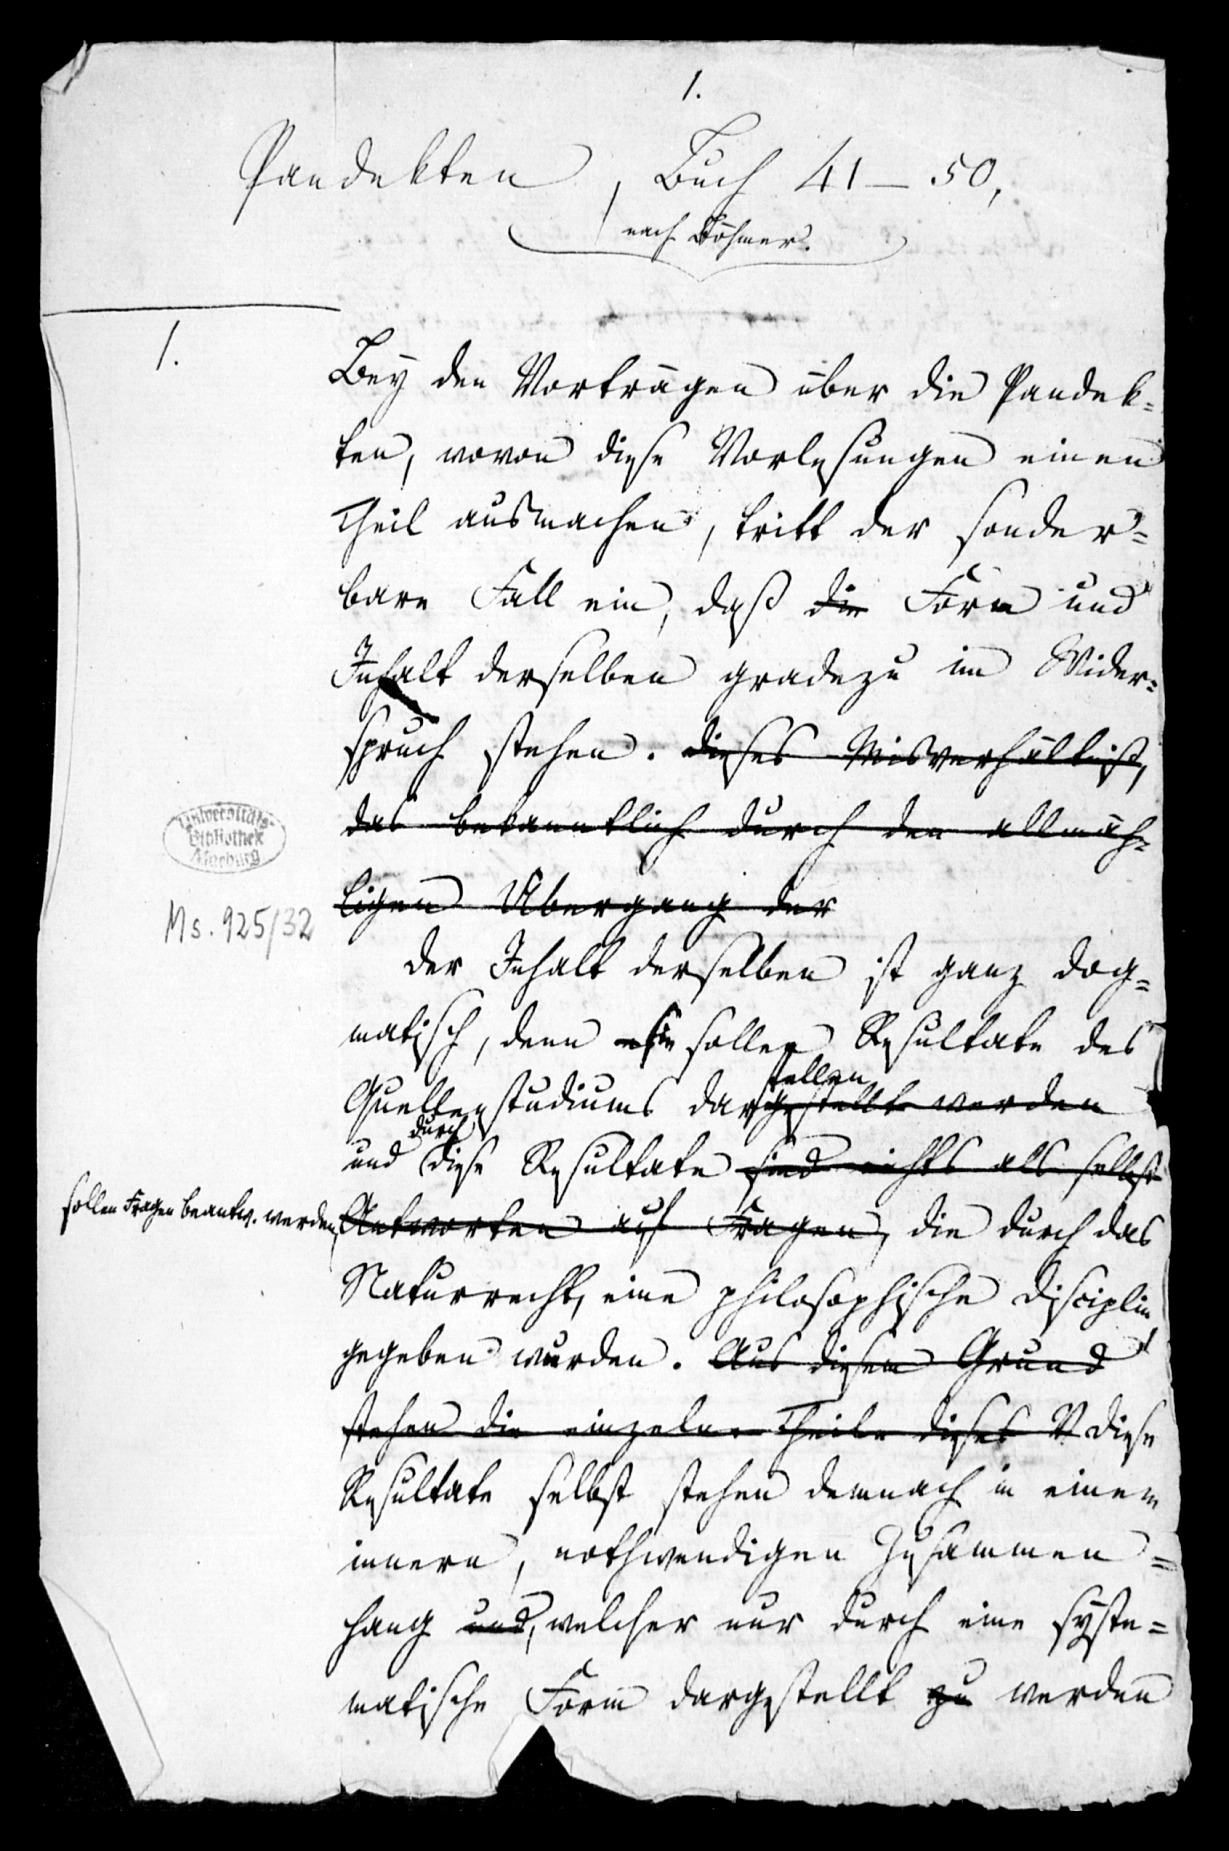 1.
Pandekten, Buch 41–50,
nach Böhmer.
1.
Bey den Vorträgen über die Pandek=
ten, wovon diese Vorlesungen einen
Theil ausmachen, tritt der sonder=
bare Fall ein, daß die Form und
Inhalt derselben gradezu im Wider=
spruch stehen. Dieses Misverhältniß,
das bekanntlich durch den allmäh=
ligen Übergang der
Universitäts-
Bibliothek
Marburg
Ms. 925/32
Der Inhalt derselben ist ganz dog=
matisch, denn sie sollen Resultate des
stellen
Quellenstudiums dargestellt werden
durch
und diese Resultate sind nichts als selbst
sollen Fragen beantw. werden,
Antworten auf Fragen, die durch das
Naturrecht, eine philosophische Disciplin,
gegeben wurden. Aus diesem Grund
stehen die einzelne Theile dieses V Diese
Resultate selbst stehen demnach in einem
innern, nothwendigen Zusammen=
hang und, welcher nur durch eine syste=
matische Form dargestellt zu werden